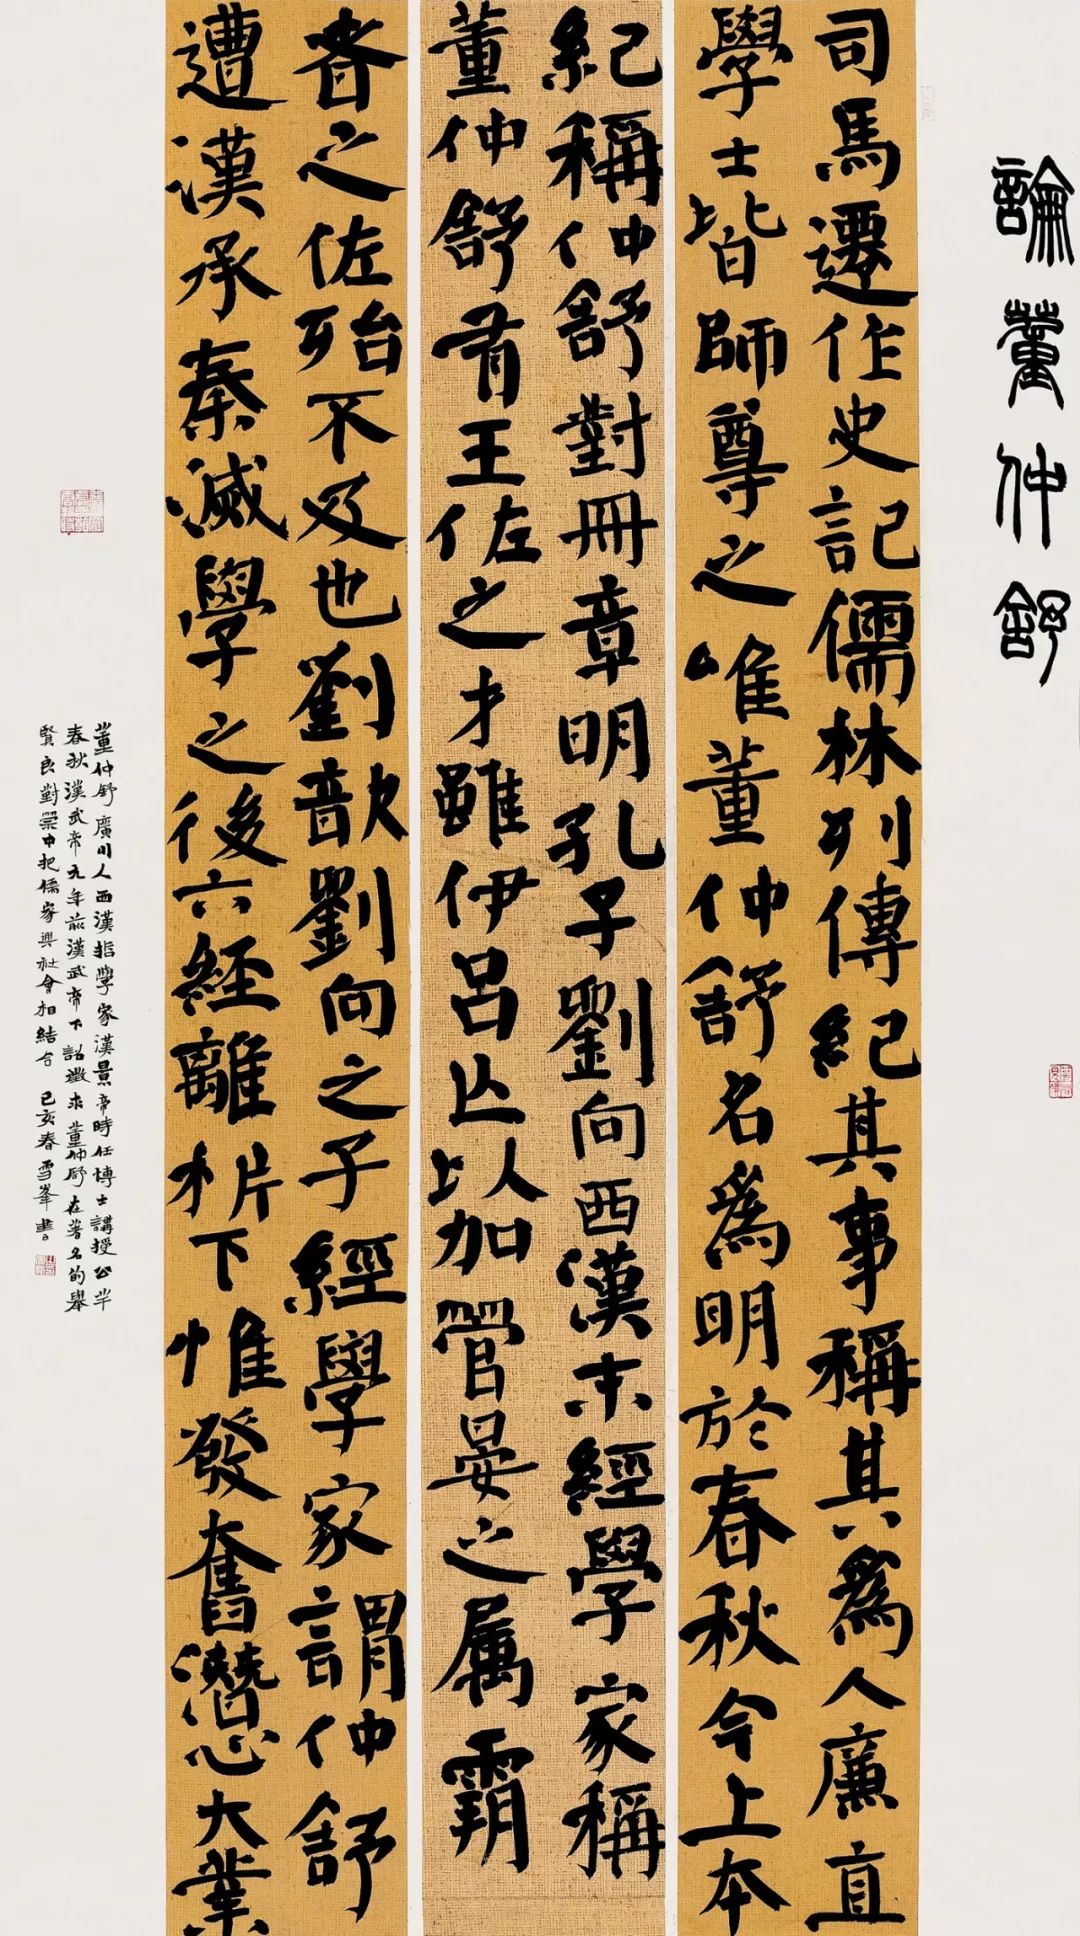 論董仲舒
司馬遷作史記儒林列傳紀其事稱其為人廉直
學士皆師尊之唯董仲舒名為明於春秋今上本
紀稱仲舒對冊章明孔子劉向西漢末經學家稱
董仲舒有王佐之才雖伊呂亾以加管晏之属霸
者之佐殆不及也劉歆劉向之子經學家謂仲舒
遭漢承秦滅學之後六經離析下帷發奮潛心大業
董仲舒廣川人西漢指學家漢景帝時任博士講授公羊
春秋漢武帝元年前漢武帝下詔徵求董仲舒在著名的舉
賢良對策中把儒家與社會相結合 己亥春雪峯書